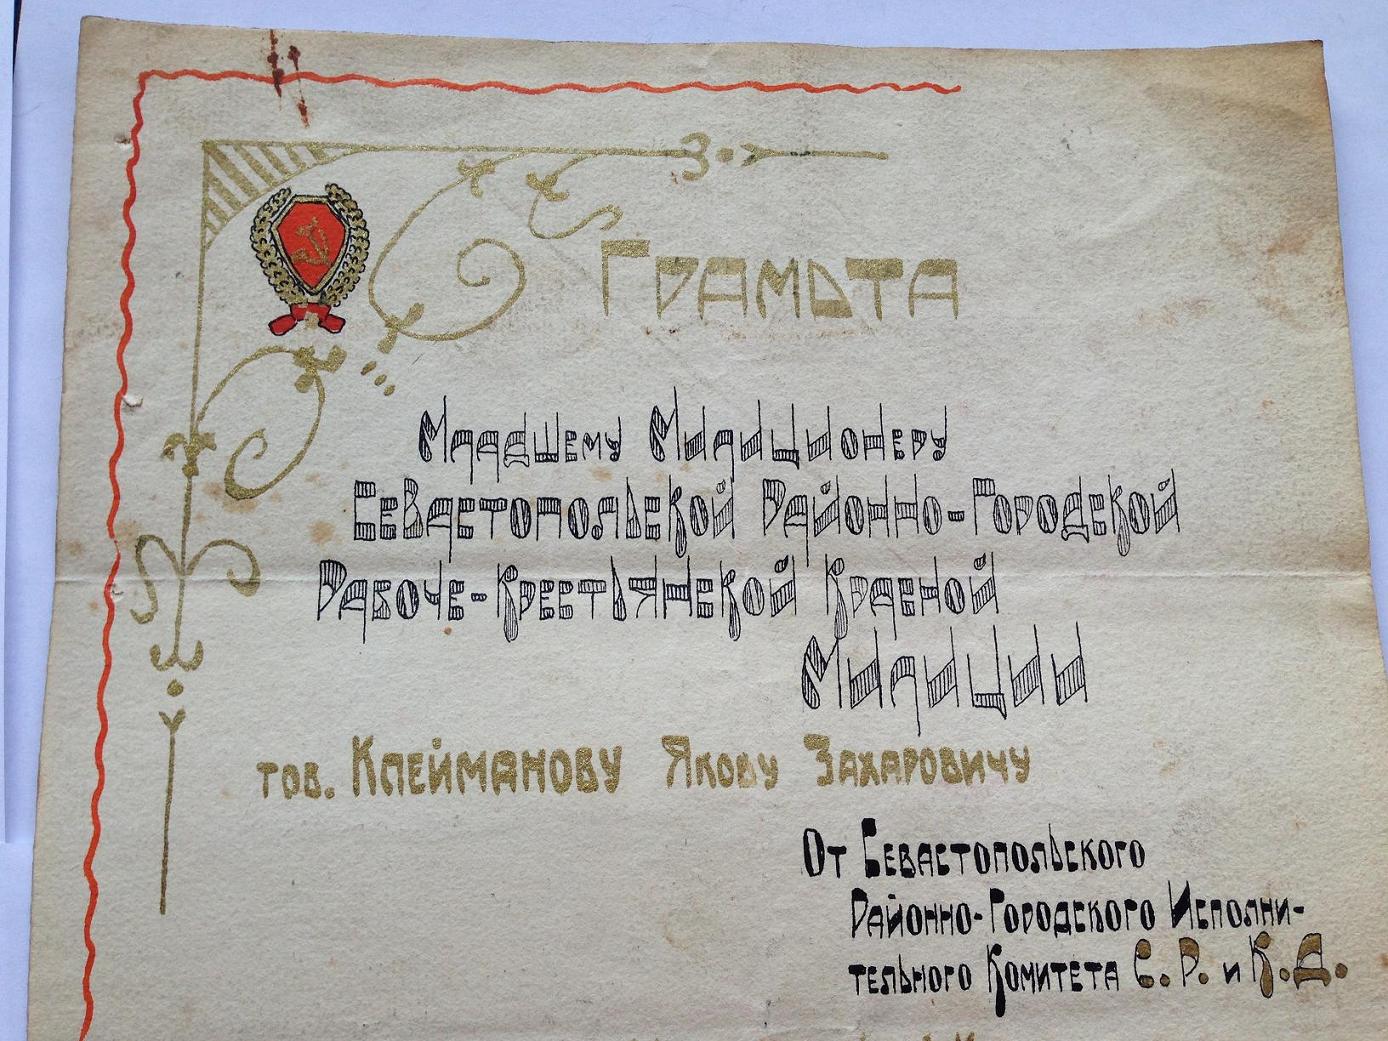 Грамота
Младшему Милиционеру
Севастопольской Районно-Городской
Рабоче-Крестьянской Красной
Милиции
тов. Клейманову Якову Захаровичу
От Севастопольского
Районно-Городского Исполни-
тельного Комитета С. Р. и К. Д.